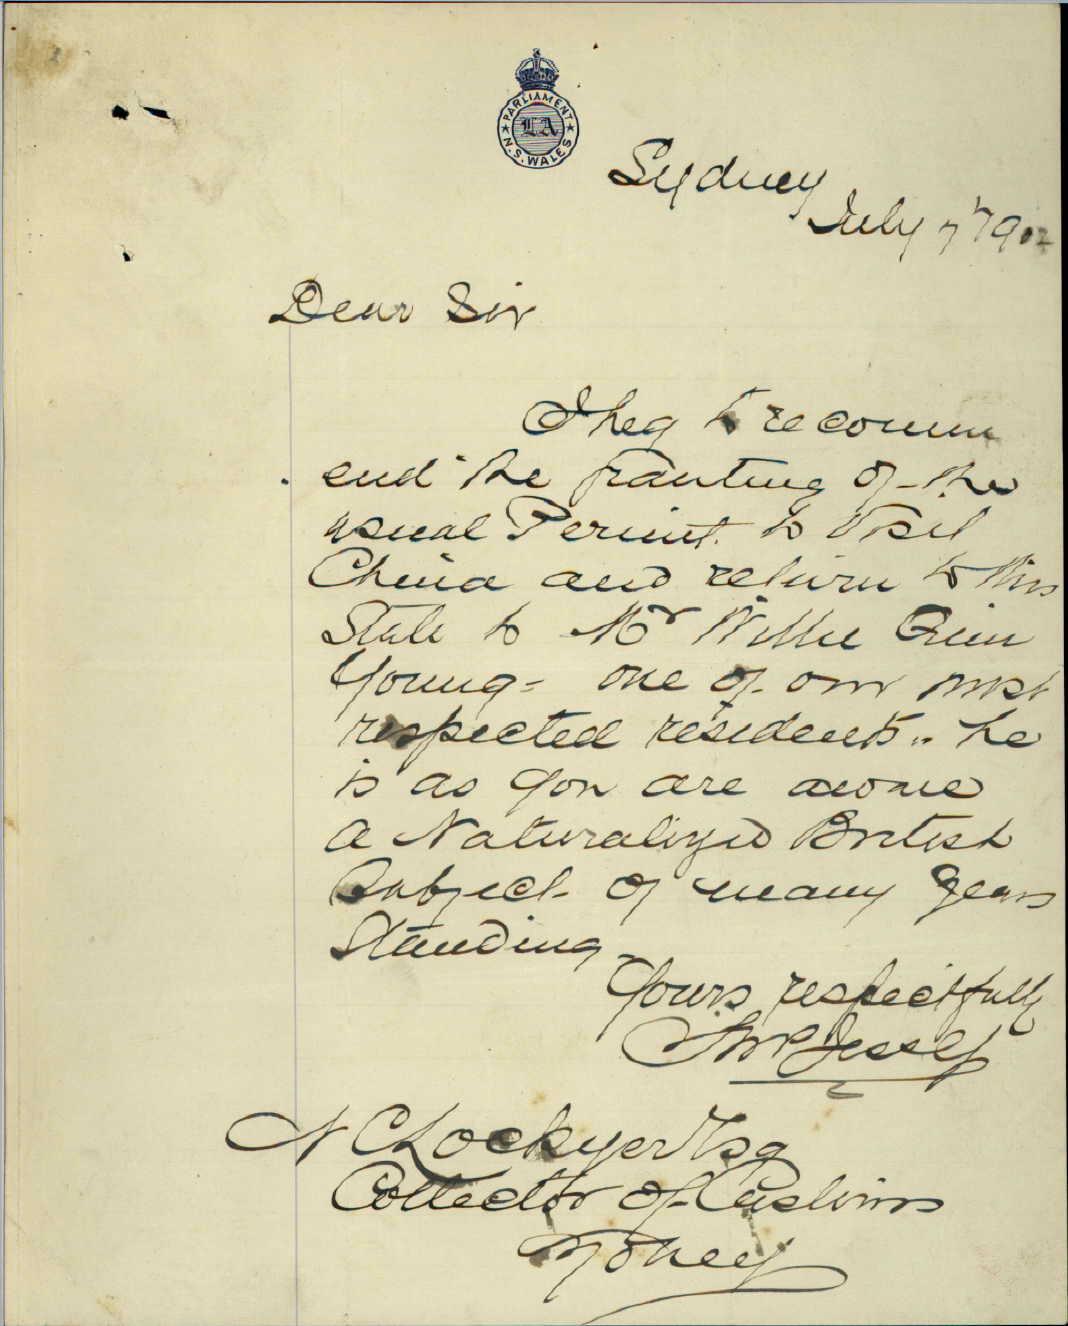 PARLIAMENT
LA
N.S.WALES
Sydney
July 7 1902
Dear Sir
I beg to recomm
end the granting of the
usual Permit to Visit
China and return to this
State to Mr Willie Quin
Young - one of our most
respected residents.. he
is as you are aware
a Naturalized British
Subject of many years
Standing
Yours respectfully
N C Lockyer Esq
Collector of Customs
Sydney